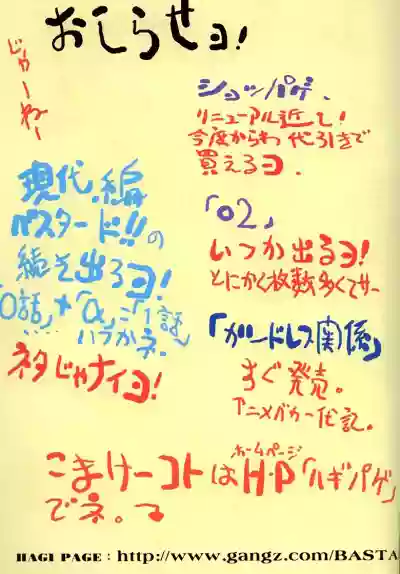 おしらせヨ!
じゃーねー
ショッパゲ、
リニューアル近し!
今度からわ代引きで
買えるヨ.
現代.編
バスタード!!の
続き出るヨ!
「0話」+「α」=「1話」
いつかネ.
ネタじゃナイヨ!
「02」
いつか出るヨ!
とにかく枚数多くてサー
「ガンドレス関係」
すぐ発売。
アニメバカ一代記。
こまけーコトはH・P「ハギパゲ」
ホームページ
でネ。
HAGI PAGE : http://www.gangz.com/BASTA